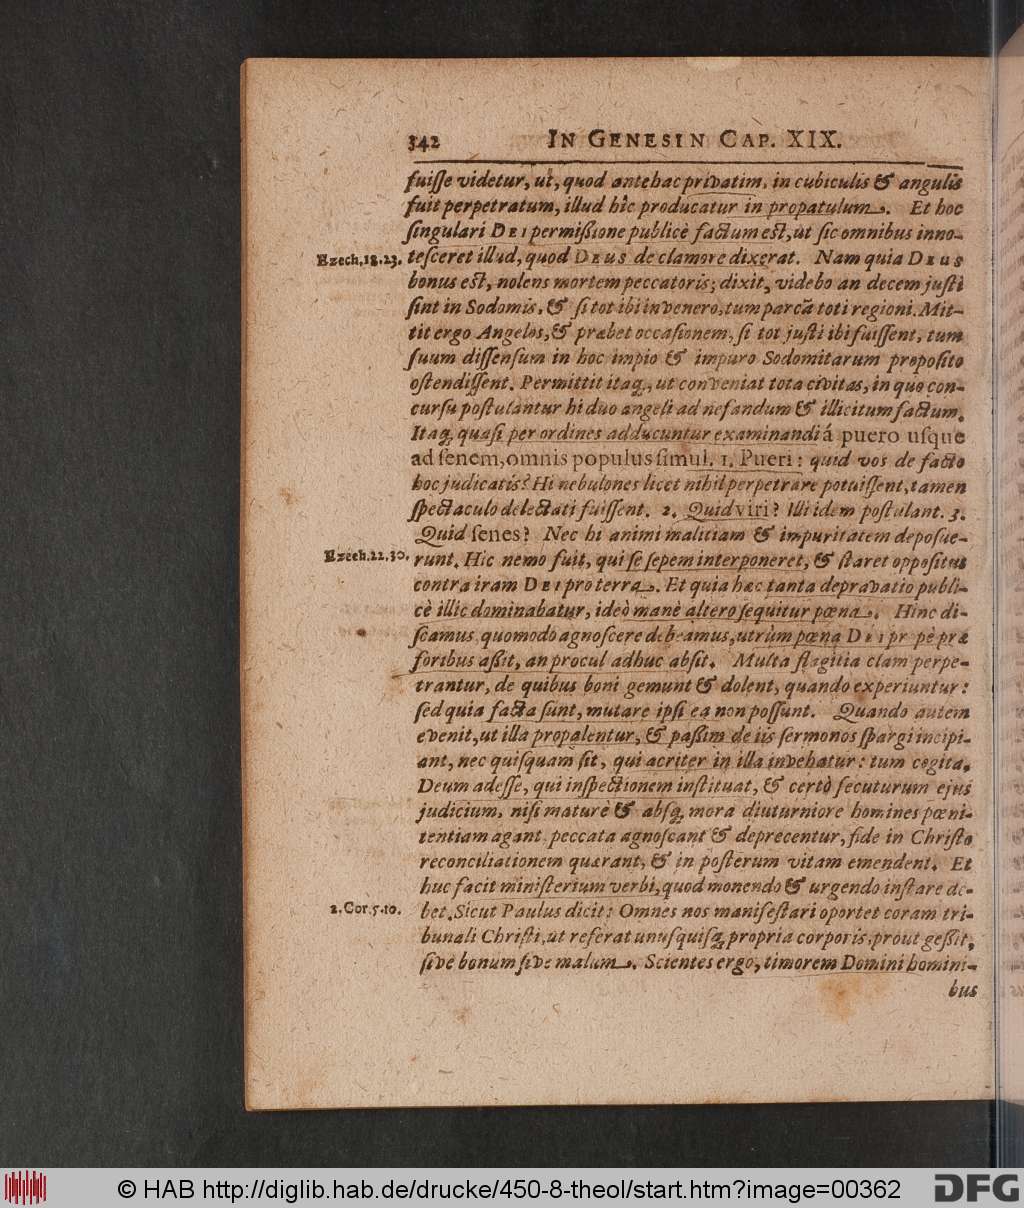 342 IN GENESIN CAP. XIX.
fuiſſe videtur, ut, quod antehac privatim, in cubiculis & angulis
fuit perpetratum, illud hîc producatur in propatulum. Et hoc
ſingulari DEI permiſsione publicè factum eſt, ut ſic omnibus inno-
Ezech.18.23. teſceret illud, quod DEUS de clamore dixerat. Nam quia DEUS
bonus eſt, nolens mortem peccatoris; dixit, videbo an decem juſti
ſint in Sodomis, & ſi tot ibi invenero, tum parcã toti regioni. Mit-
tit ergo Angelos, & præbet occaſionem, ſi tot juſti ibi fuiſſent, tum
ſuum diſſenſum in hoc impio & impuro Sodomitarum propoſito
oſtendiſſent. Permittit itaq;, ut conveniat tota civitas, in quo con-
curſu poſtulantur hi duo angeli ad nefandum & illicitum factum.
Itaq; quaſi per ordines adducuntur examinandi á puero uſque
ad ſenem, omnis populus ſimul. 1. Pueri: quid vos de facto
hoc judicatis? Hi nebulones licet nihil perpetrare potuiſſent, tamen
ſpectaculo delectati fuiſſent. 2. Quid viri? Illi idem poſtulant. 3.
Quid ſenes? Nec hi animi malitiam & impuritatem depoſue-
Ezech.22.30. runt. Hic nemo fuit, qui ſe ſepem interponeret, & ſtaret oppoſitus
contra iram DEI pro terra. Et quia hæc tanta depravatio publi-
cè illic dominabatur, ideò manè altero ſequitur pœna. Hinc di-
ſcamus, quomodo agnoſcere debeamus, utrùm pœna DEI propè præ
foribus aßit, an procul adhuc abſit. Multa flagitia clam perpe-
trantur, de quibus boni gemunt & dolent, quando experiuntur:
ſed quia facta ſunt, mutare ipſi ea non poſſunt. Quando autem
evenit, ut illa propalentur, & paßim de iis ſermonos ſpargi incipi-
ant, nec quiſquam ſit, qui acriter in illa invehatur: tum cogita,
Deum adeſſe, qui inſpectionem inſtituat, & certò ſecuturum ejus
judicium, niſi maturè & abſq; mora diuturniore homines pœni-
tentiam agant, peccata agnoſcant & deprecentur, fide in Chriſto
reconciliationem quærant, & in poſterum vitam emendent. Et
huc facit miniſterium verbi, quod monendo & urgendo inſtare de-
2.Cor.5.10. bet. Sicut Paulus dicit: Omnes nos manifeſtari oportet coram tri-
bunali Chriſti, ut referat unuſquiſq; propria corporis, prout geßit,
ſive bonum ſive malum. Scientes ergo, timorem Domini homini-
bus
© HAB http://diglib.hab.de/drucke/450-8-theol/start.htm?image=00362
DFG